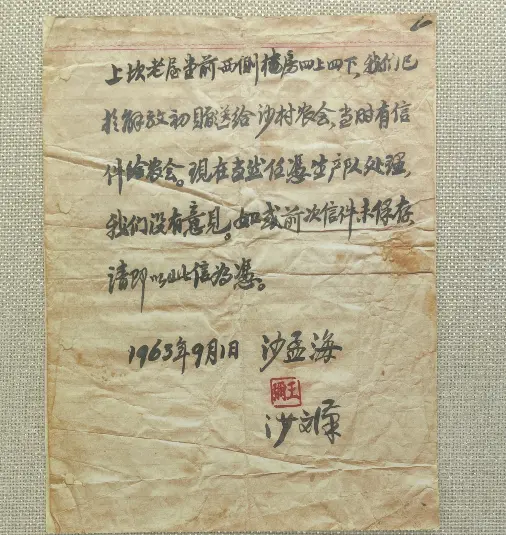 上坎老屋堂前西侧楼房四上四下，我们已
于解放初期赠送给沙村农会，当时有信
件给农会。现在当然任凭生产队处理，
我们没有意见。如或前次信件未保存，
请即以此信为凭。
1963年9月1日 沙孟海
沙文